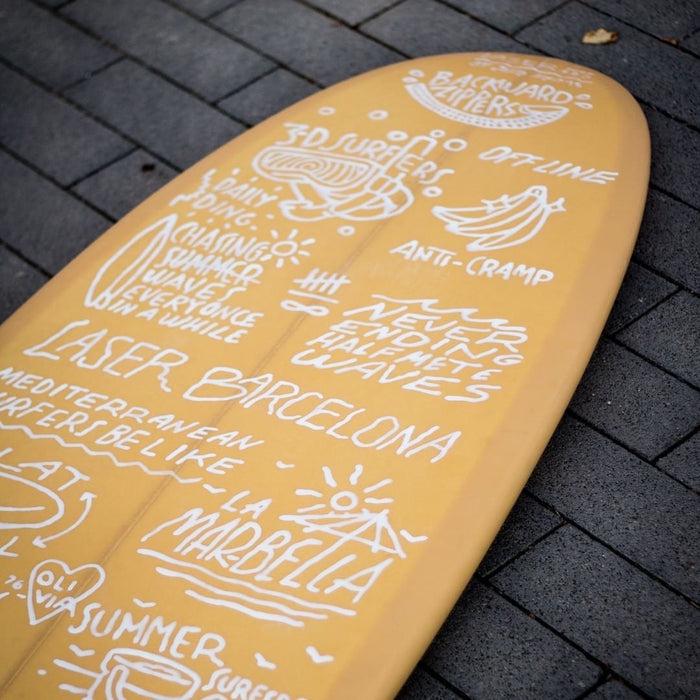 BACKWARD
ZIPPERS
3-D SURFERS
OFF-LINE
DAILY
DING
ANTI-CRAMP
CHASING
SUMMER
WAVES
EVERYONCE
IN A WHILE
NEVER
ENDING
HALF METE
WAVES
LASER BARCELONA
MEDITERRANEAN
URFERS BE LIKE
LAT
LA
MARBELLA
L
76
OLI
VIA
SUMMER